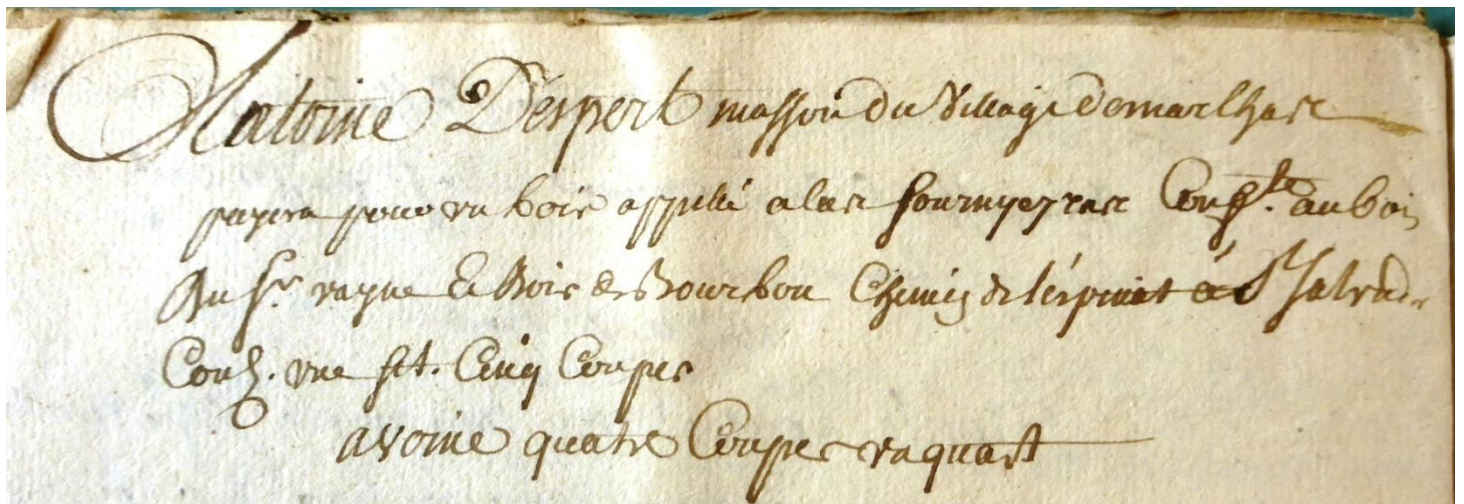 Antoine Despert masson du village de marlhac
payera pour un bois appellé a las fournyeyras Confte. au bois
du sr. vayne Et Bois de Bourbon Chemin de lespinat a St Salvadr
Conh. une set. Cinq Coupes
avoine quatre Coupes un quart